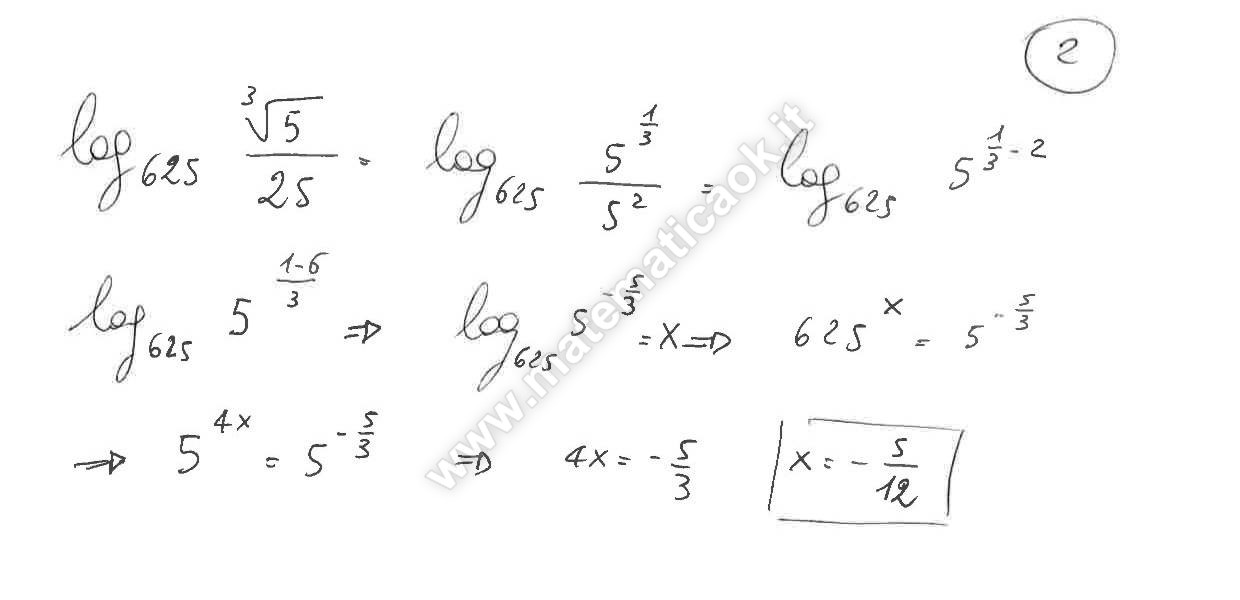 2
log₆₂₅ ∛5/25 = log₆₂₅ 5^(1/3)/5² = log₆₂₅ 5^(1/3 - 2)
log₆₂₅ 5^((1-6)/3) ⇒ log₆₂₅ 5^(-5/3) = x ⇒ 625^x = 5^(-5/3)
⇒ 5^(4x) = 5^(-5/3) ⇒ 4x = -5/3 x = -5/12
www.matematicaok.it